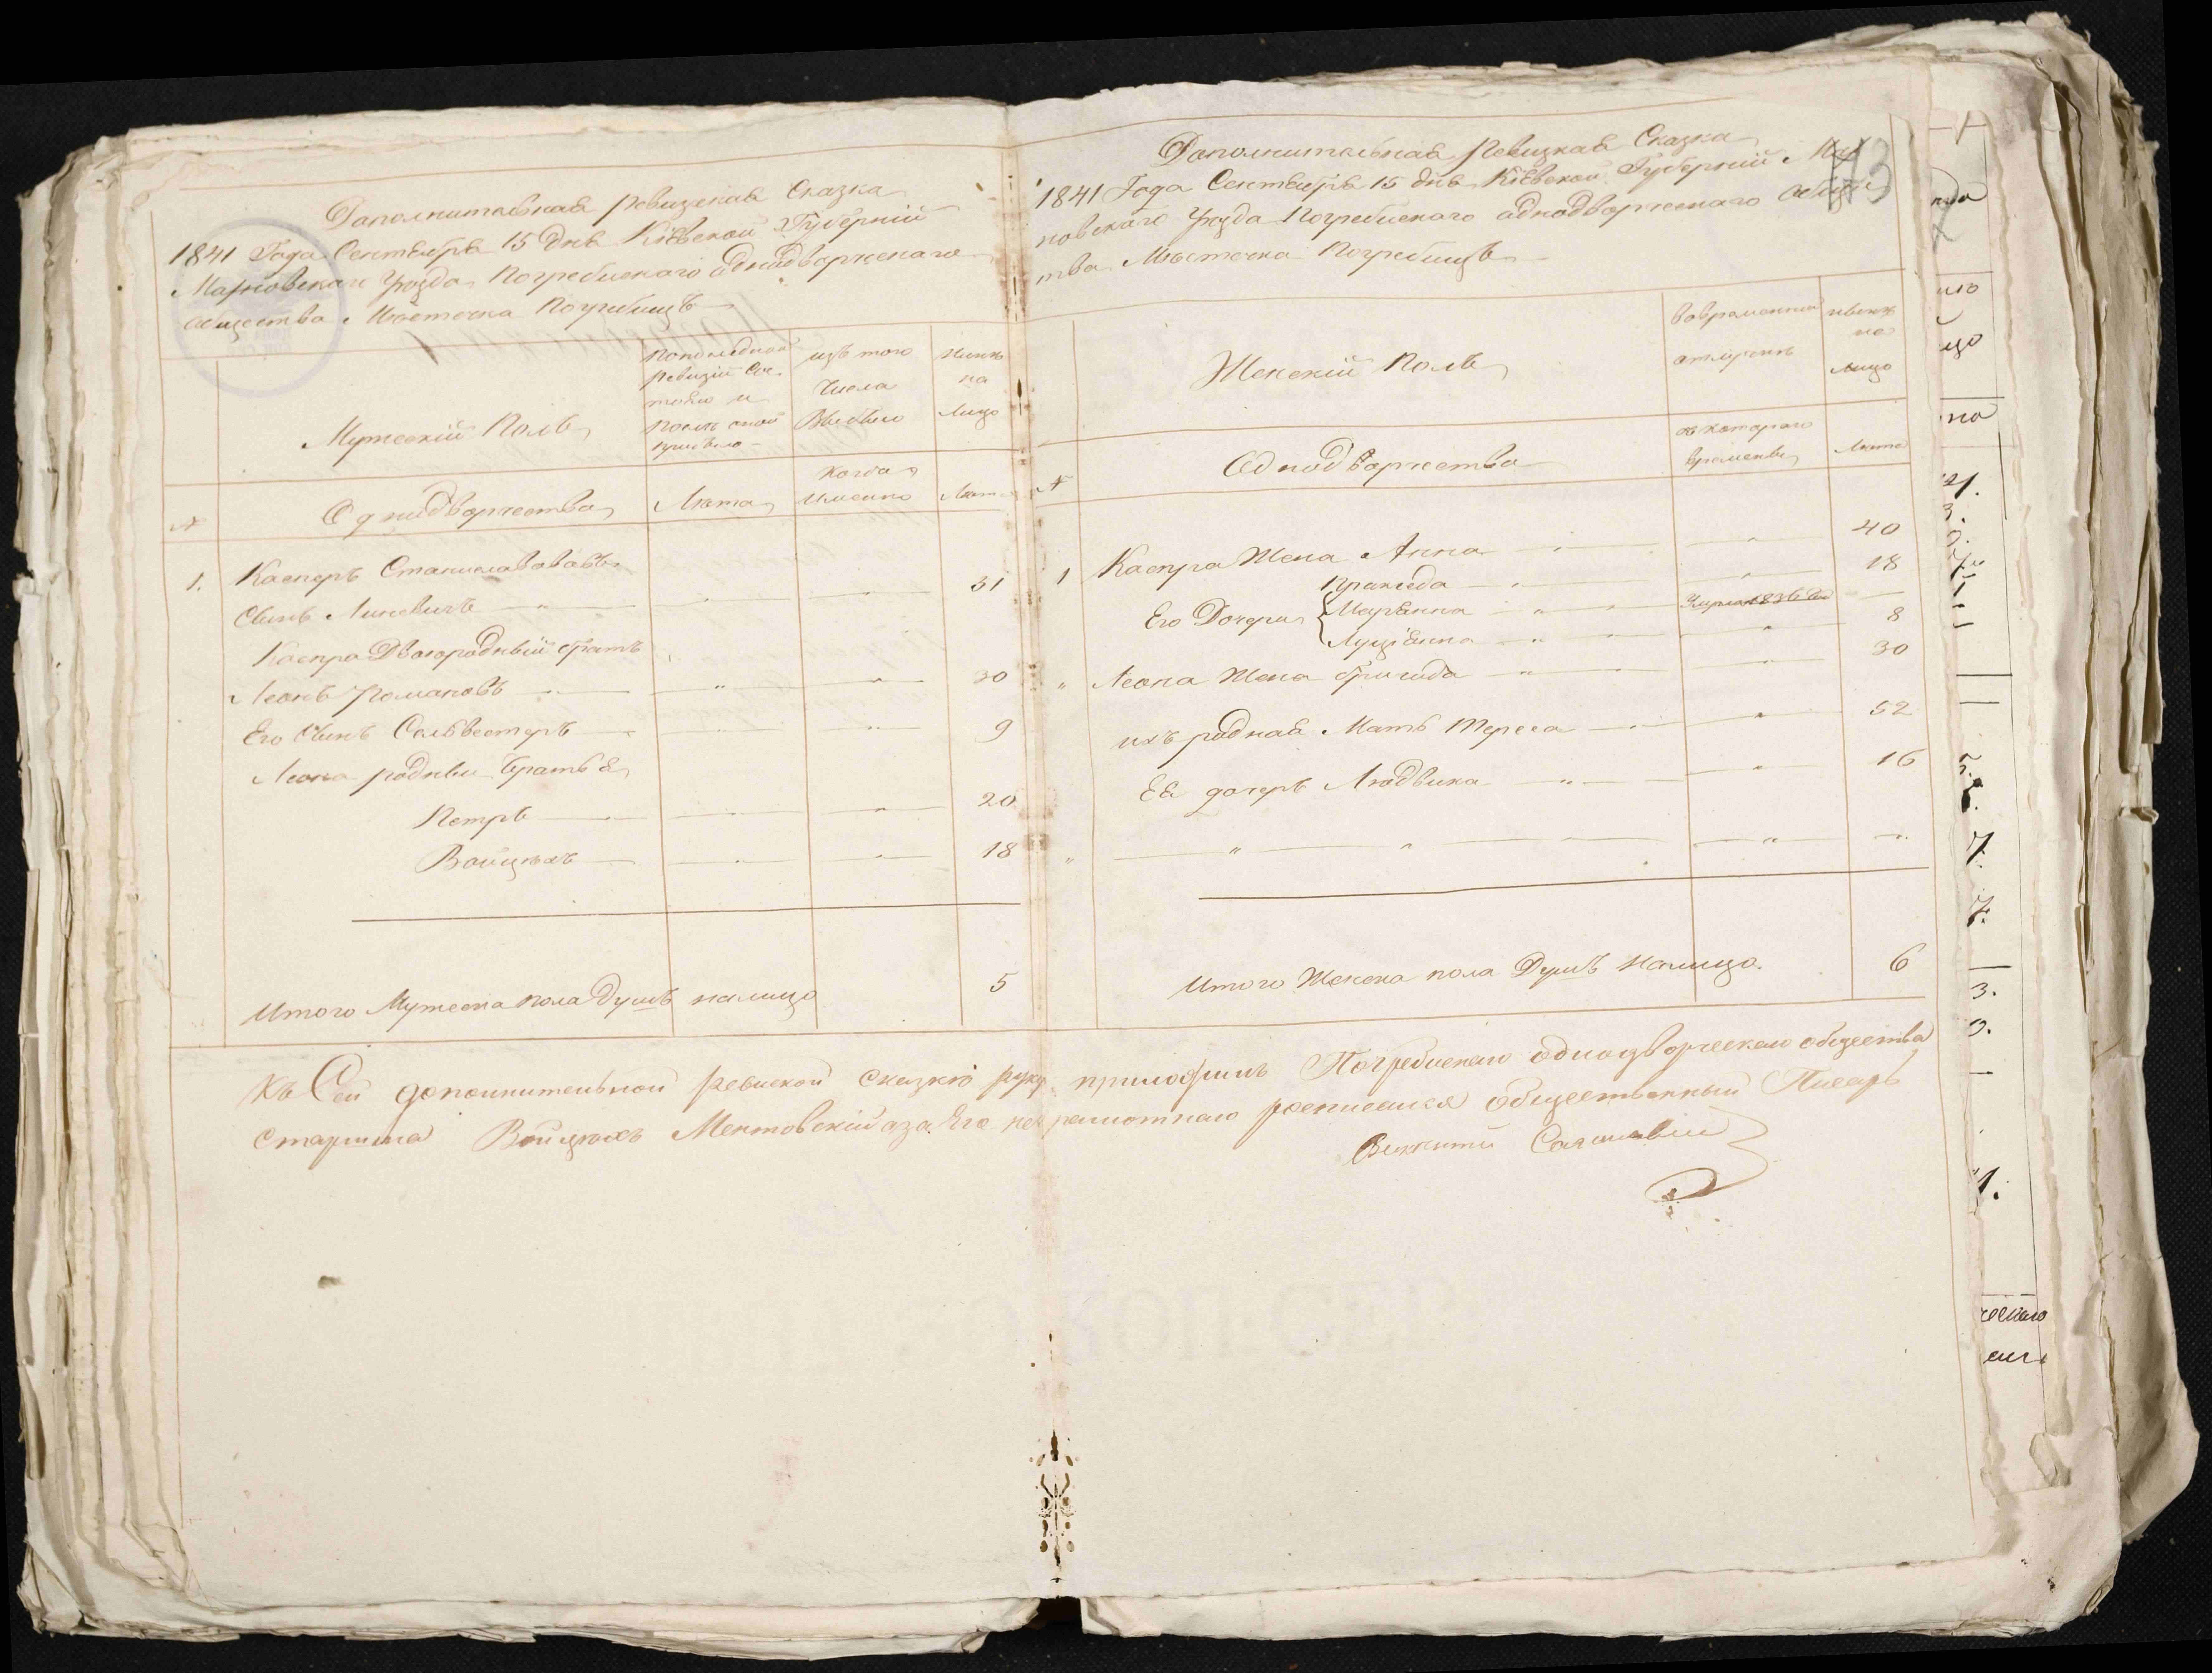 Дополнительная Ревизская Сказка
1841 Года Сентября 15 дня Кіевской Губерніи
Махновскаго Уѣзда Погребискаго однодворческаго
общества Мѣстечка Погребищъ
Мужескій Полъ
По последней
Ревизіи Сос-
тояло и
После оной
прибыло
изъ того
Числа
Выбыло
Нынѣ
на
Лицо
№
Однодворчества
Лѣта
Когда
Именно
Лѣта
1. Касперъ Станиславовъ
Сынъ Линевичъ — " — " — " — 31
Каспра Двоюродный братъ
Леонъ Романовъ — " — " — " — 30
Его Сынъ Сольвестеръ — " — " — " — 9
Леона родныи Братья
Петръ — " — " — " — 20
Войцѣхъ — " — " — " — 18
Итого Мужеска пола Душъ налицо 5
Дополнительная Ревизкая Сказка
1841 Года Сентября 15 дня Кіевской Губерніи Мах
новскаго Уѣзда Погребискаго однодворческаго общес
тва Мѣстечка Погребищъ
113
Женскій Полъ
Во временной
отлучкѣ
нынѣ
на
лицо
№
Однодворчества
съ котораго
времени
Лѣта
1 Каспра Жена Анна — " — " — 40
Праксeда — " — " — 18
Его Дочери Марьянна — " — Умерла 1836 Год —
Луціянна — " — " — 8
" Леона Жена Бригида — " — " — 30
ихъ родная Мать Тереса — " — " — 52
Ея дочерь Людвика — " — " — 16
" — " — " — " — "
Итого Женска пола Душъ налицо. 6
Къ Сей дополнительной ревиской сказкѣ руку приложилъ Погребискаго однодворческаго общества
Старшина Войцѣхъ Ментовскій а за Его неграмотнаго росписался общественный Писарь